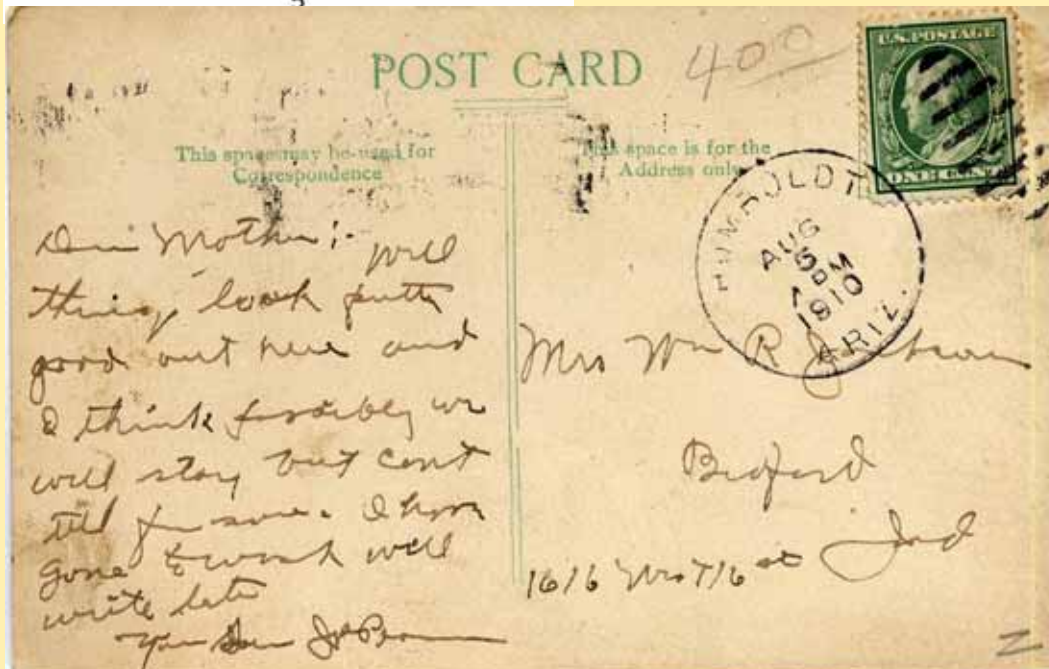 POST CARD
400
U.S. POSTAGE
ONE CENT
This space may be used for
Correspondence
This space is for the
Address only
HUMBOLDT
AUG
5
PM
1910
ARIZ.
Dear Mother:-
Well
things look pretty
good out here and
I think possibly we
will stay but cant
tell for sure. I have
gone to work will
write later
Your Son
Mrs Wm R
Bedford
Ind
1616 West 16 st